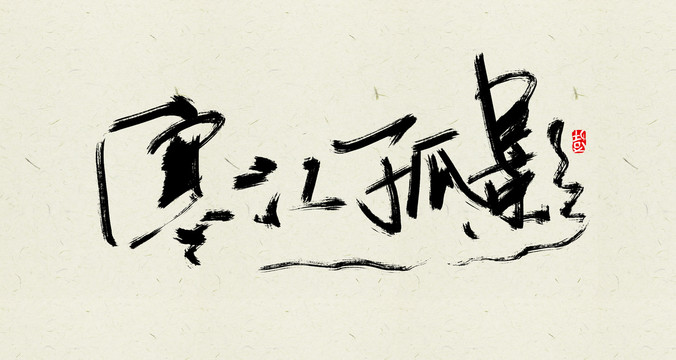 寒江孤影